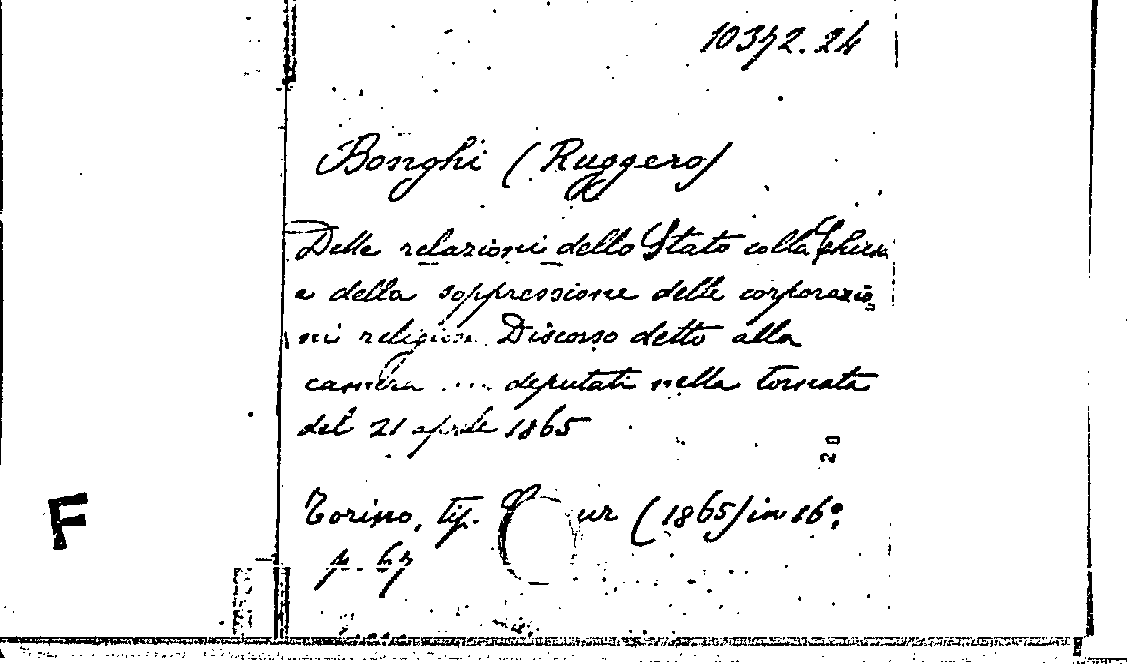 10372.24
Bonghi (Ruggero)
Delle relazioni dello Stato colla Chiesa
e della soppressione delle corporazio
ni religiose Discorso detto alla
camera ... deputati nella tornata
del 21 aprile 1865
20
Torino, tip. (1865) in 16º.
p. 67
F